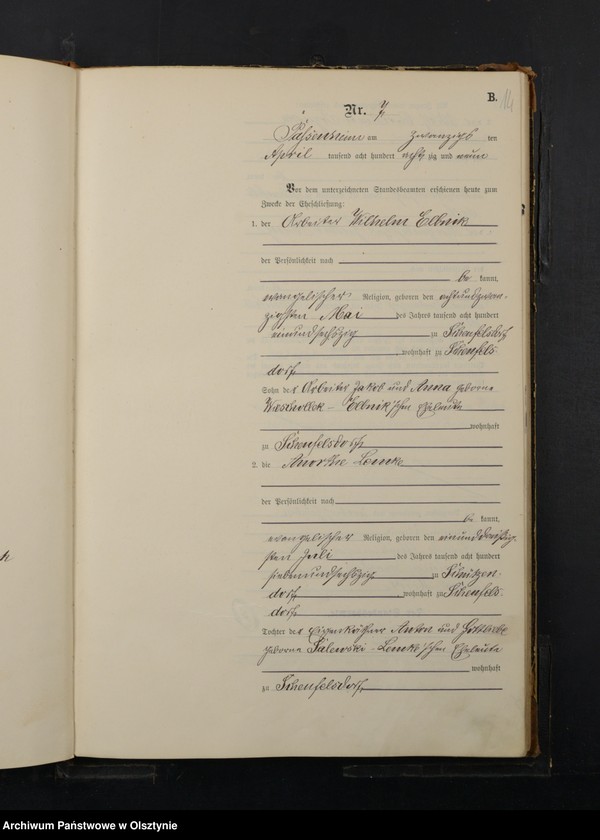 B.
14
Nr. 7
Passenheim am zwanzigsten
April tausend acht hundert achtzig und neun
Vor dem unterzeichneten Standesbeamten erschienen heute zum
Zwecke der Eheschließung:
1. der Arbeiter Wilhelm Elbnik
der Persönlichkeit nach
be kannt,
evangelischer Religion, geboren den achtundzwan-
zigsten Mai des Jahres tausend acht hundert
einundsechszig zu Scheufelsdorf
, wohnhaft zu Scheufels-
dorf
Sohn des Arbeiter Jakob und Anna geborne
Elbnik'schen Eheleute
wohnhaft
zu Scheufelsdorf
2. die Lenk
der Persönlichkeit nach
be kannt,
evangelischer Religion, geboren den einunddreißig-
sten Juli des Jahres tausend acht hundert
siebenundsechszig zu Schützen-
dorf, wohnhaft zu Scheufels-
dorf
Tochter des Eigenkäthner Anton und
geborne Salewski-Lenk'schen Eheleute
wohnhaft
zu Scheufelsdorf
Archiwum Państwowe w Olsztynie